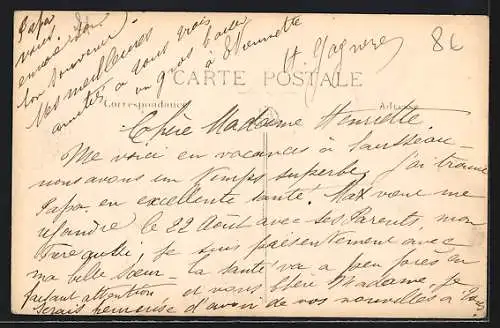 86
CARTE POSTALE
Correspondance
Adresse
Chère Madame Henriette
Me voici en vacances à
nous avons un temps superbe, j'ai trouvé
Papa en excellente santé. Max vient me
rejoindre le 22 Août avec ses Parents, mon
frère je suis présentement avec
ma belle Sœur — la santé va à peu près en
faisant attention et vous chère Madame, je
serais heureuse d'avoir de vos nouvelles à
Papa
vous
envoie son
bon souvenir.
Mes meilleures
amitiés à vous trois
un gros baiser
à Etiennette